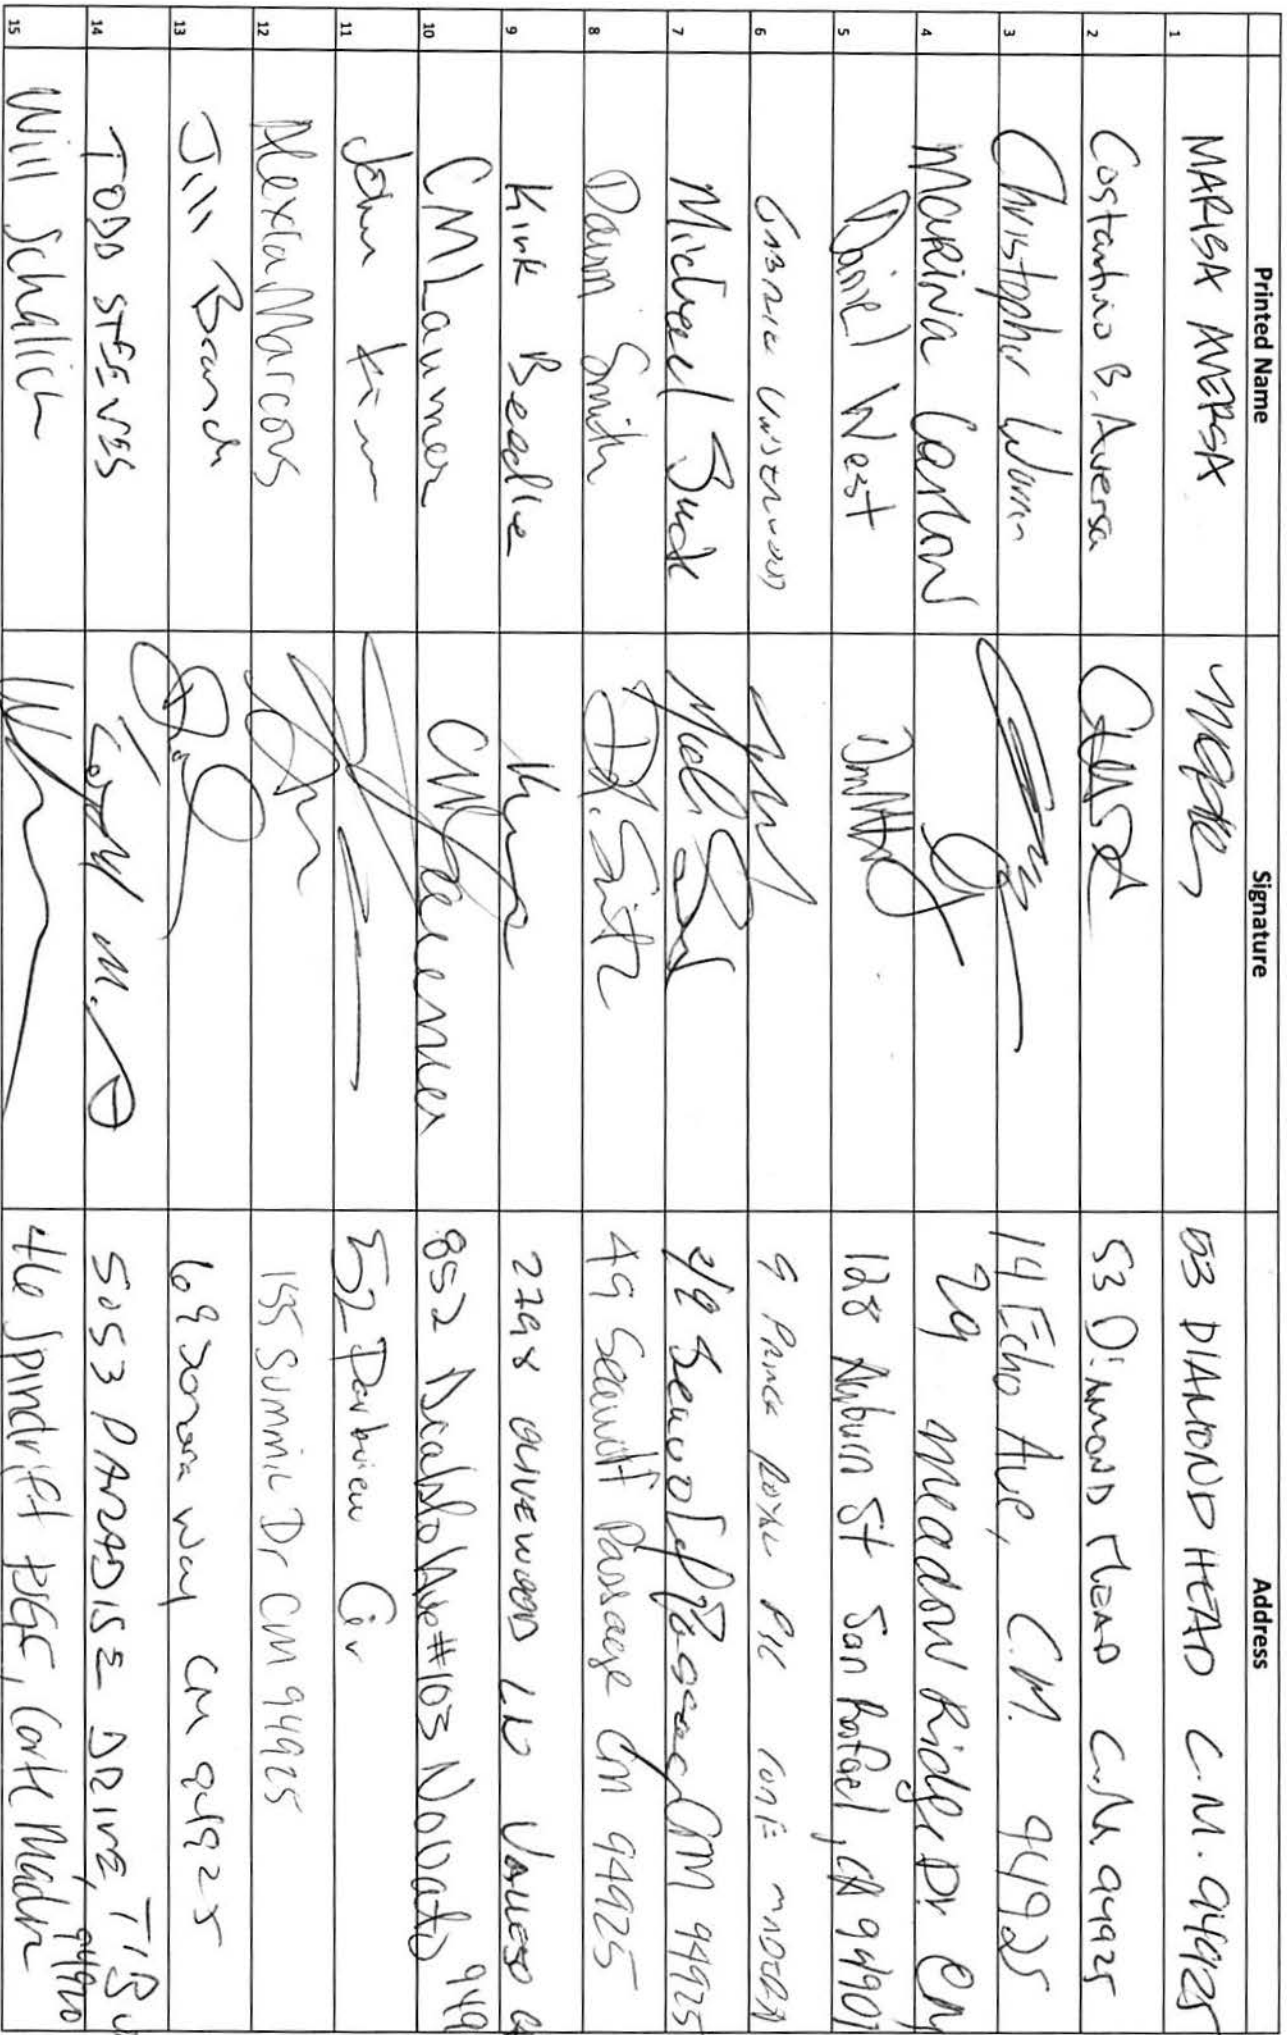 Printed Name Signature Address
1 MARISA AVERSA 53 DIAMOND HEAD C.M. 94925
2 Costantino B. Aversa 53 DiAMOND HEAD C.M. 94925
3 Christopher 14 Echo Ave, C.M. 94925
4 MARINA Carlow 29 meadow Ridge Dr CM
5 Daniel West 128 Auburn St San Rafael, CA 94901
6 9 Prince Royal PSC CORTE MADERA
7 Michael 49 Seawolf Passage CM 94925
8 Dawn Smith D. Smith 49 Seawolf Passage CM 94925
9 Kirk Beedle 2798 OLIVEWOOD LN VALLEJO CA
10 CM Laumer CM Laumer 852 Diablo Ave #103 Novato 949
11 John 52 Parkview Cir
12 Alexia Marcous 155 Summit Dr CM 94925
13 Jill 69 Sonora Way CM 94925
14 TODD STEEVES 5053 PARADISE DRIVE, TIBU 94920
15 Will Schalich 46 Spindrift PSGE, Corte Madera